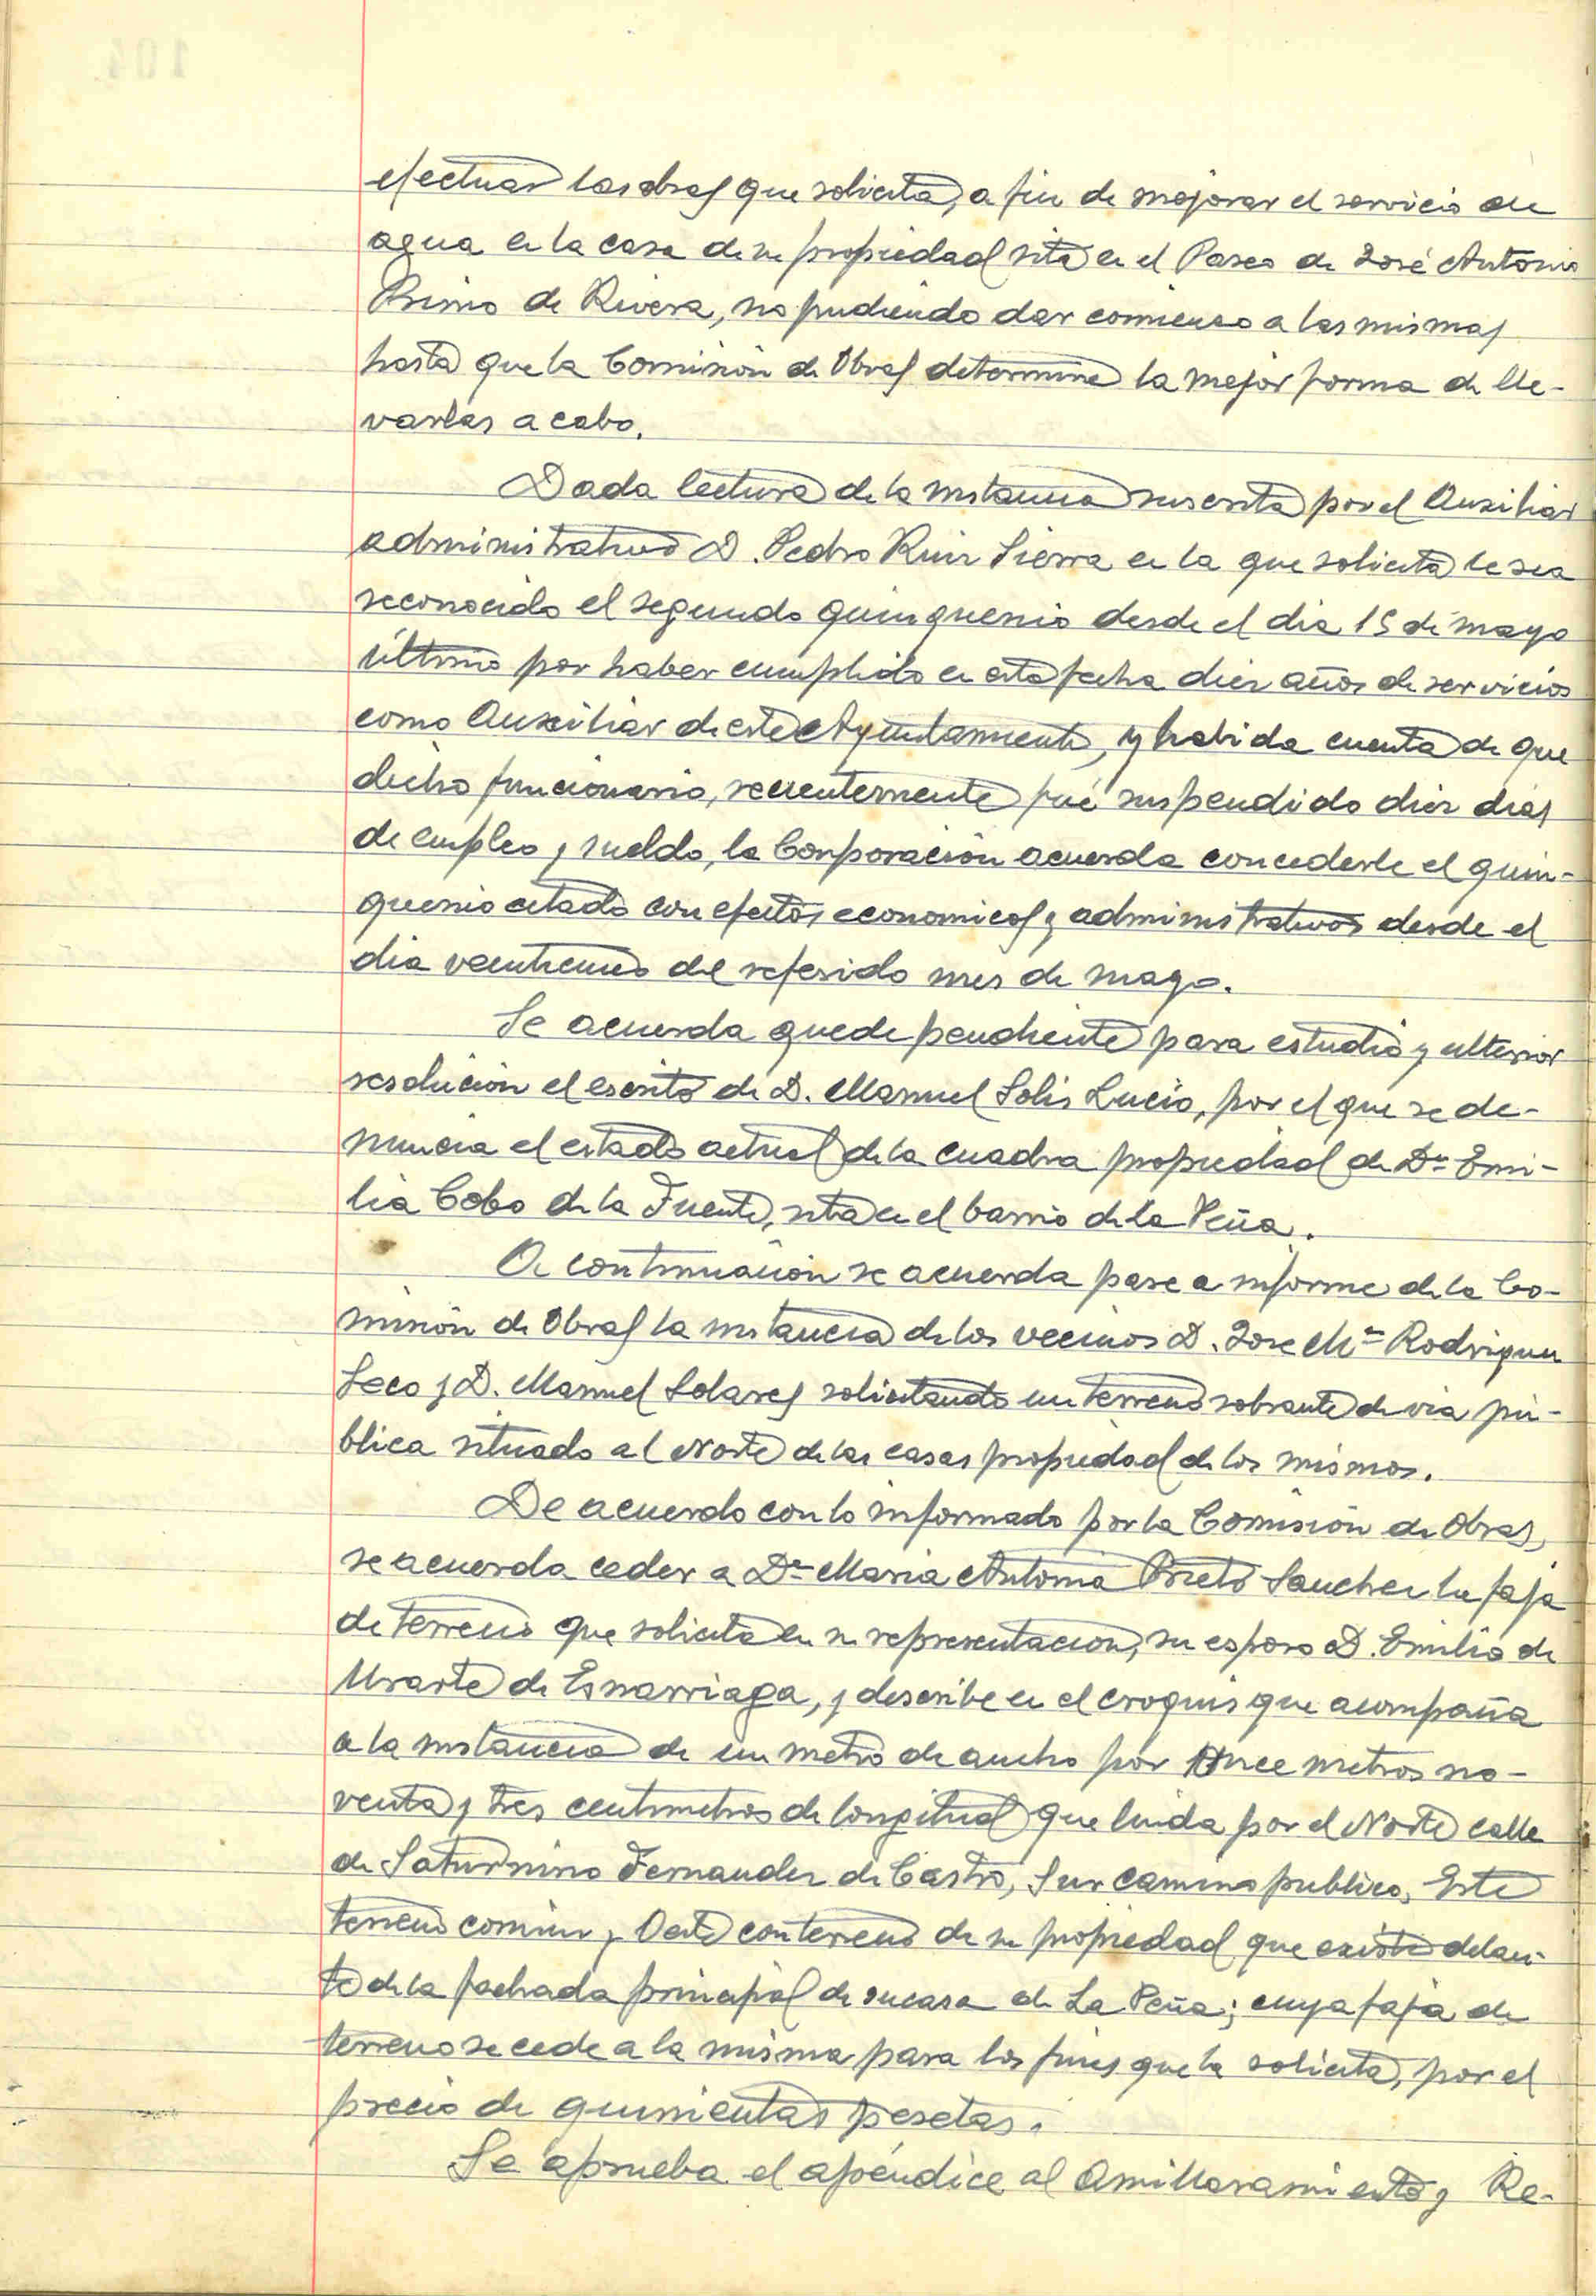 efectuar las obras que solicita, a fin de mejorar el servicio de
agua en la casa de su propiedad sita en el Paseo de José Antonio
Primo de Rivera, no pudiendo dar comienzo a las mismas
hasta que la Comisión de Obras determine la mejor forma de lle-
varlas a cabo.
Dada lectura de la instancia suscrita por el Auxiliar
administrativo D. Pedro Ruiz Sierra en la que solicita le sea
reconocido el segundo quinquenio desde el dia 15 de mayo
último por haber cumplido en esta fecha diez años de servicios
como Auxiliar de este Ayuntamiento, y habida cuenta de que
dicho funcionario, recientemente fué suspendido diez dias
de empleo y sueldo, la Corporación acuerda concederle el quin-
quenio citado con efectos economicos y administrativos desde el
dia veinticinco del referido mes de mayo.
Se acuerda quede pendiente para estudio y ulterior
resolución el escrito de D. Manuel Solis Lucio, por el que se de-
nuncia el estado actual de la cuadra propiedad de Dª Emi-
lia Cobo de la Fuente, sita en el barrio de La Peña.
A continuación se acuerda pase a informe de la Co-
misión de Obras la instancia de los vecinos D. Jose Mª Rodriguez
Seco y D. Manuel Solares solicitando un terreno sobrante de via pú-
blica situado al Norte de las casas propiedad de los mismos.
De acuerdo con lo informado por la Comisión de Obras,
se acuerda ceder a Dª Maria Antonia Prieto Sanchez la faja
de terreno que solicita en su representacion, su esposo D. Emilio de
Urarte de Esnarriaga, y describe en el croquis que acompaña
a la instancia de un metro de ancho por once metros no-
venta y tres centimetros de longitud que linda por el Norte calle
de Saturnino Fernandez de Castro, Sur camino publico, Este
terreno comun y Oeste con terreno de su propiedad que existe delan-
te de la fachada principal de su casa de La Peña; cuya faja de
terreno se cede a la misma para los fines que la solicita, por el
precio de quinientas pesetas.
Se aprueba el apéndice al Amillaramiento y Re-